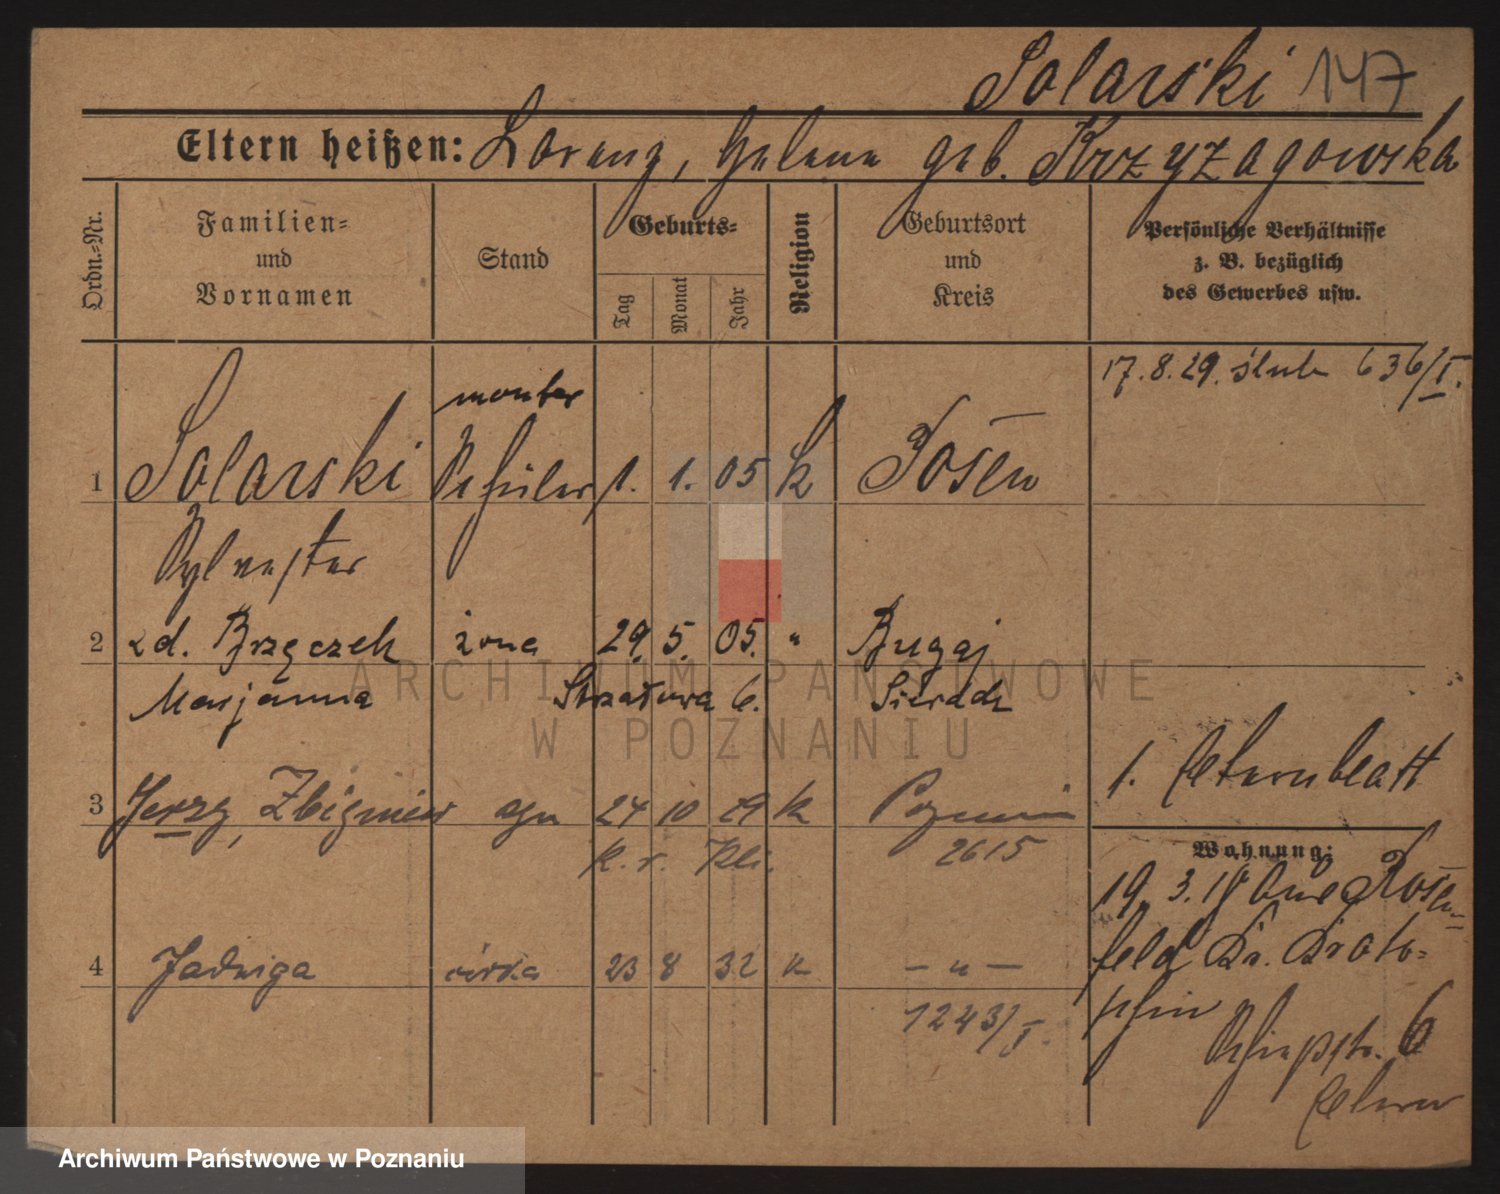 Solarski 147
Eltern heißen: Lorenz, Helene geb. Krzyżagowska
Ordn.-Nr.
Familien- und Vornamen
Stand
Geburts-
Tag
Monat
Jahr
Religion
Geburtsort und Kreis
Persönliche Verhältnisse z. B. bezüglich des Gewerbes usw.
17.8.29. ślub 636/I.
monter
1 Solarski Schüler 1. 1. 05 k Posen
Sylvester
2 zd. Brzęczek żona 29. 5. 05. " Bugaj
Marjanna Strzałowa 6. Sieradz
1. Elternblatt
3 Jerzy, Zbigniew syn 24 10 29 k Poznań
2615
Wohnung:
19. 3. 18 aus Rosen-
feld Kr. Kroto-
schin
4 Jadwiga córka 23 8 32 k — " —
1243/I.
Schießstr. 6
Eltern
ARCHIWUM PAŃSTWOWE
W POZNANIU
Archiwum Państwowe w Poznaniu